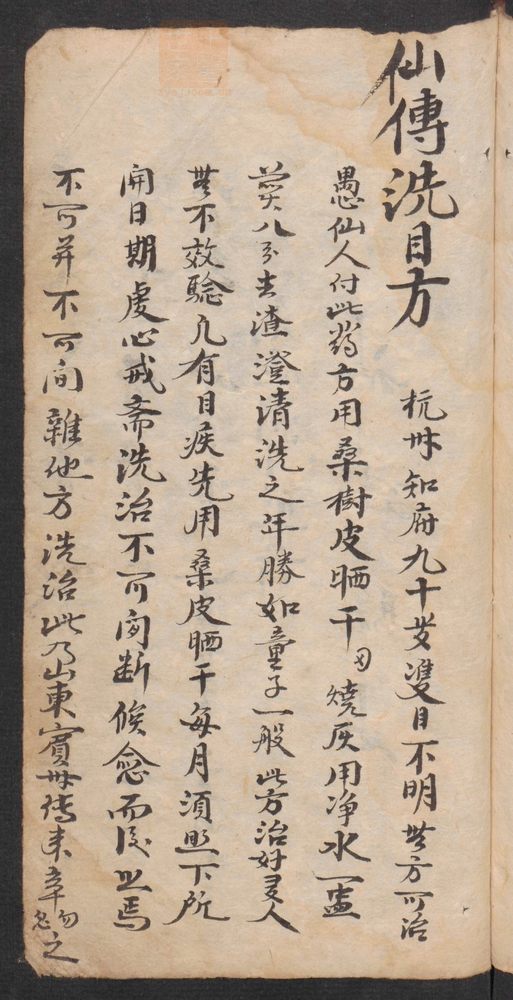 仙傳洗目方
杭州知府九十岁雙目不明無方可治
愚仙人付此药方用桑樹皮晒干烧灰用净水一盅
煎八分去渣澄清洗之年勝如童子一般此方治好多人
無不效驗凡有目疾先用桑皮晒干每月須照下所
開日期虔心戒斋洗治不可间断候念而後止焉
不可并不可间雜他方洗治此乃山東賓州傳来幸勿忽之